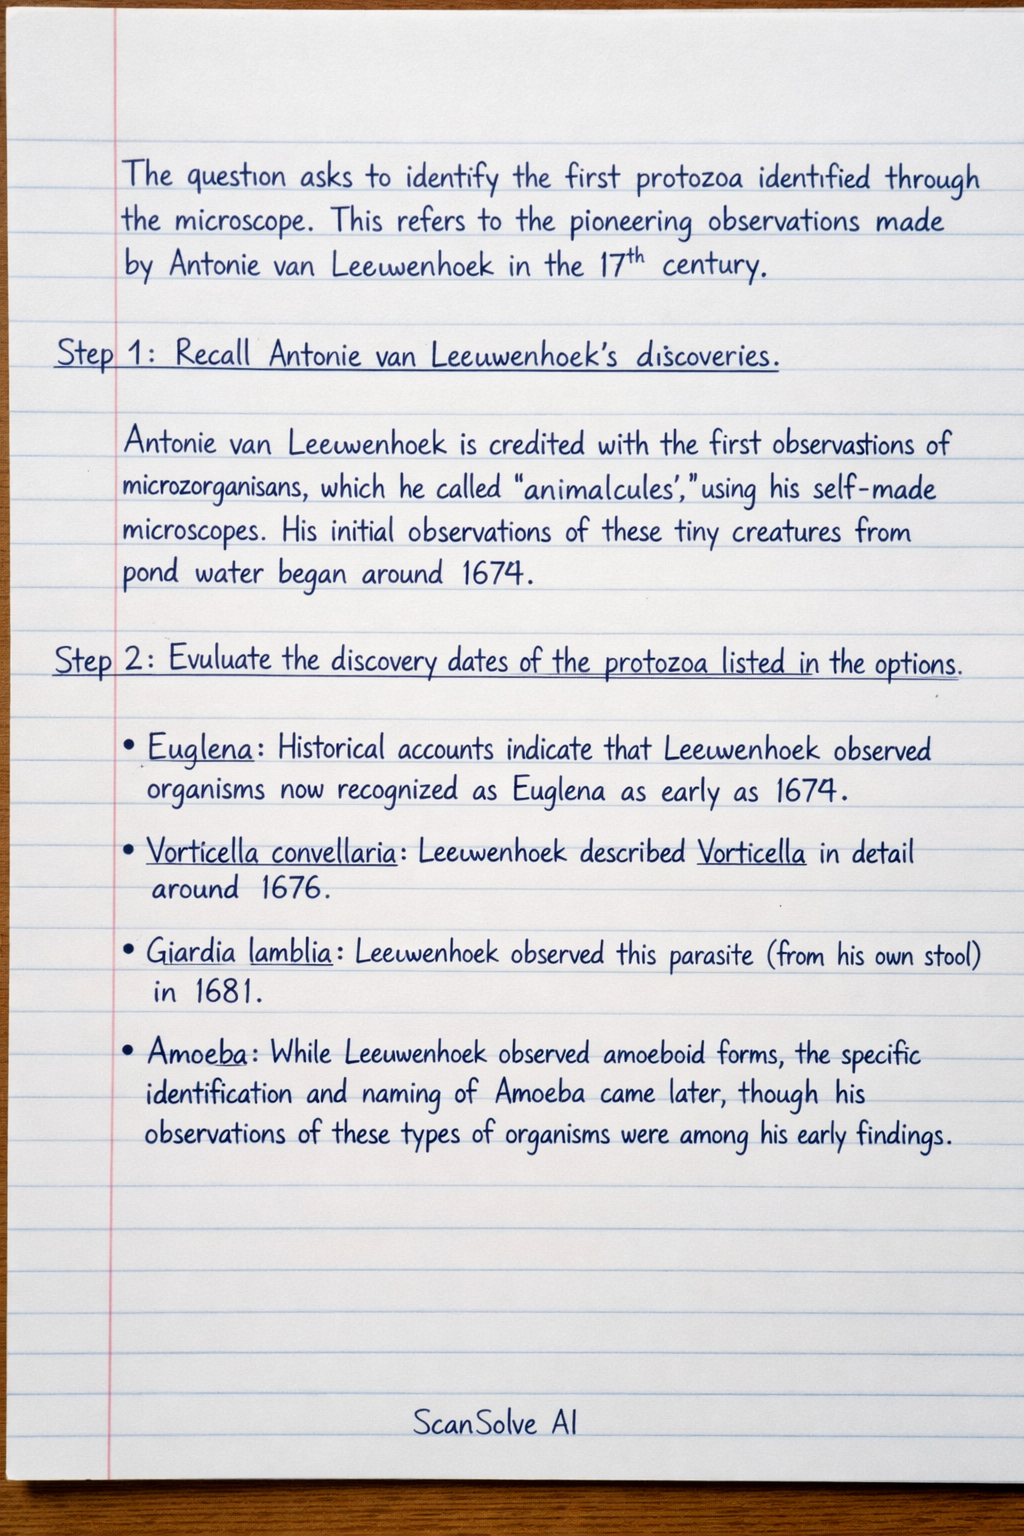 The question asks to identify the first protozoa identified through
the microscope. This refers to the pioneering observations made
by Antonie van Leeuwenhoek in the 17th century.
Step 1: Recall Antonie van Leeuwenhoek's discoveries.
Antonie van Leeuwenhoek is credited with the first observastions of
microzorganisans, which he called "animalcules'," using his self-made
microscopes. His initial observations of these tiny creatures from
pond water began around 1674.
Step 2: Evuluate the discovery dates of the protozoa listed in the options.
• Euglena: Historical accounts indicate that Leeuwenhoek observed
organisms now recognized as Euglena as early as 1674.
• Vorticella convellaria: Leeuwenhoek described Vorticella in detail
around 1676.
• Giardia lamblia: Leeuwenhoek observed this parasite (from his own stool)
in 1681.
• Amoeba: While Leeuwenhoek observed amoeboid forms, the specific
identification and naming of Amoeba came later, though his
observations of these types of organisms were among his early findings.
ScanSolve AI